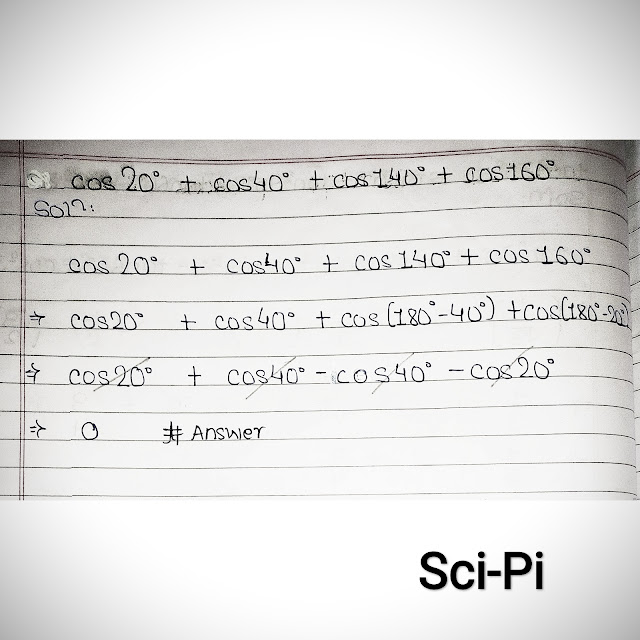 cos 20° + cos 40° + cos 140° + cos 160°
Solⁿ:
cos 20° + cos 40° + cos 140° + cos 160°
⇒ cos 20° + cos 40° + cos (180° - 40°) + cos (180° - 20°)
⇒ cos 20° + cos 40° - cos 40° - cos 20°
⇒ 0 # Answer
Sci-Pi